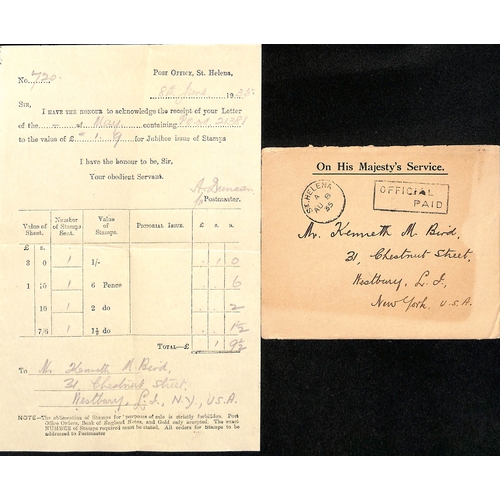 Post Office, St. Helena,
No. 720.
8th June 1935.
Sir,
I have the honour to acknowledge the receipt of your Letter
of the — of May containing
to the value of £ - 1 . 9 for Jubilee issue of Stamps
I have the honour to be, Sir,
Your obedient Servant.
A. Duncan
Postmaster.
Value of Sheet. Number of Stamps Sent. Value of Stamps. Pictorial Issue. £ s. D.
£ s.
3 0 1 1/- 1 0
1 10 1 6 Pence 6
10 1 2 do 2
7/6 1 1½ do 1½
Total—£ 1 9½
To Mr. Kenneth M. Bird,
31, Chestnut Street,
Westbury, L.I., N.Y., U.S.A.
NOTE—The obliteration of Stamps for purposes of sale is strictly forbidden. Post
Office Orders, Bank of England Notes, and Gold only accepted. The exact
NUMBER of Stamps required must be stated. All orders for Stamps to be
addressed to Postmaster
On His Majesty's Service.
ST. HELENA
A
AU 9
35
OFFICIAL
PAID
Mr. Kenneth M. Bird,
31, Chestnut Street,
Westbury, L.I.,
New York, U.S.A.